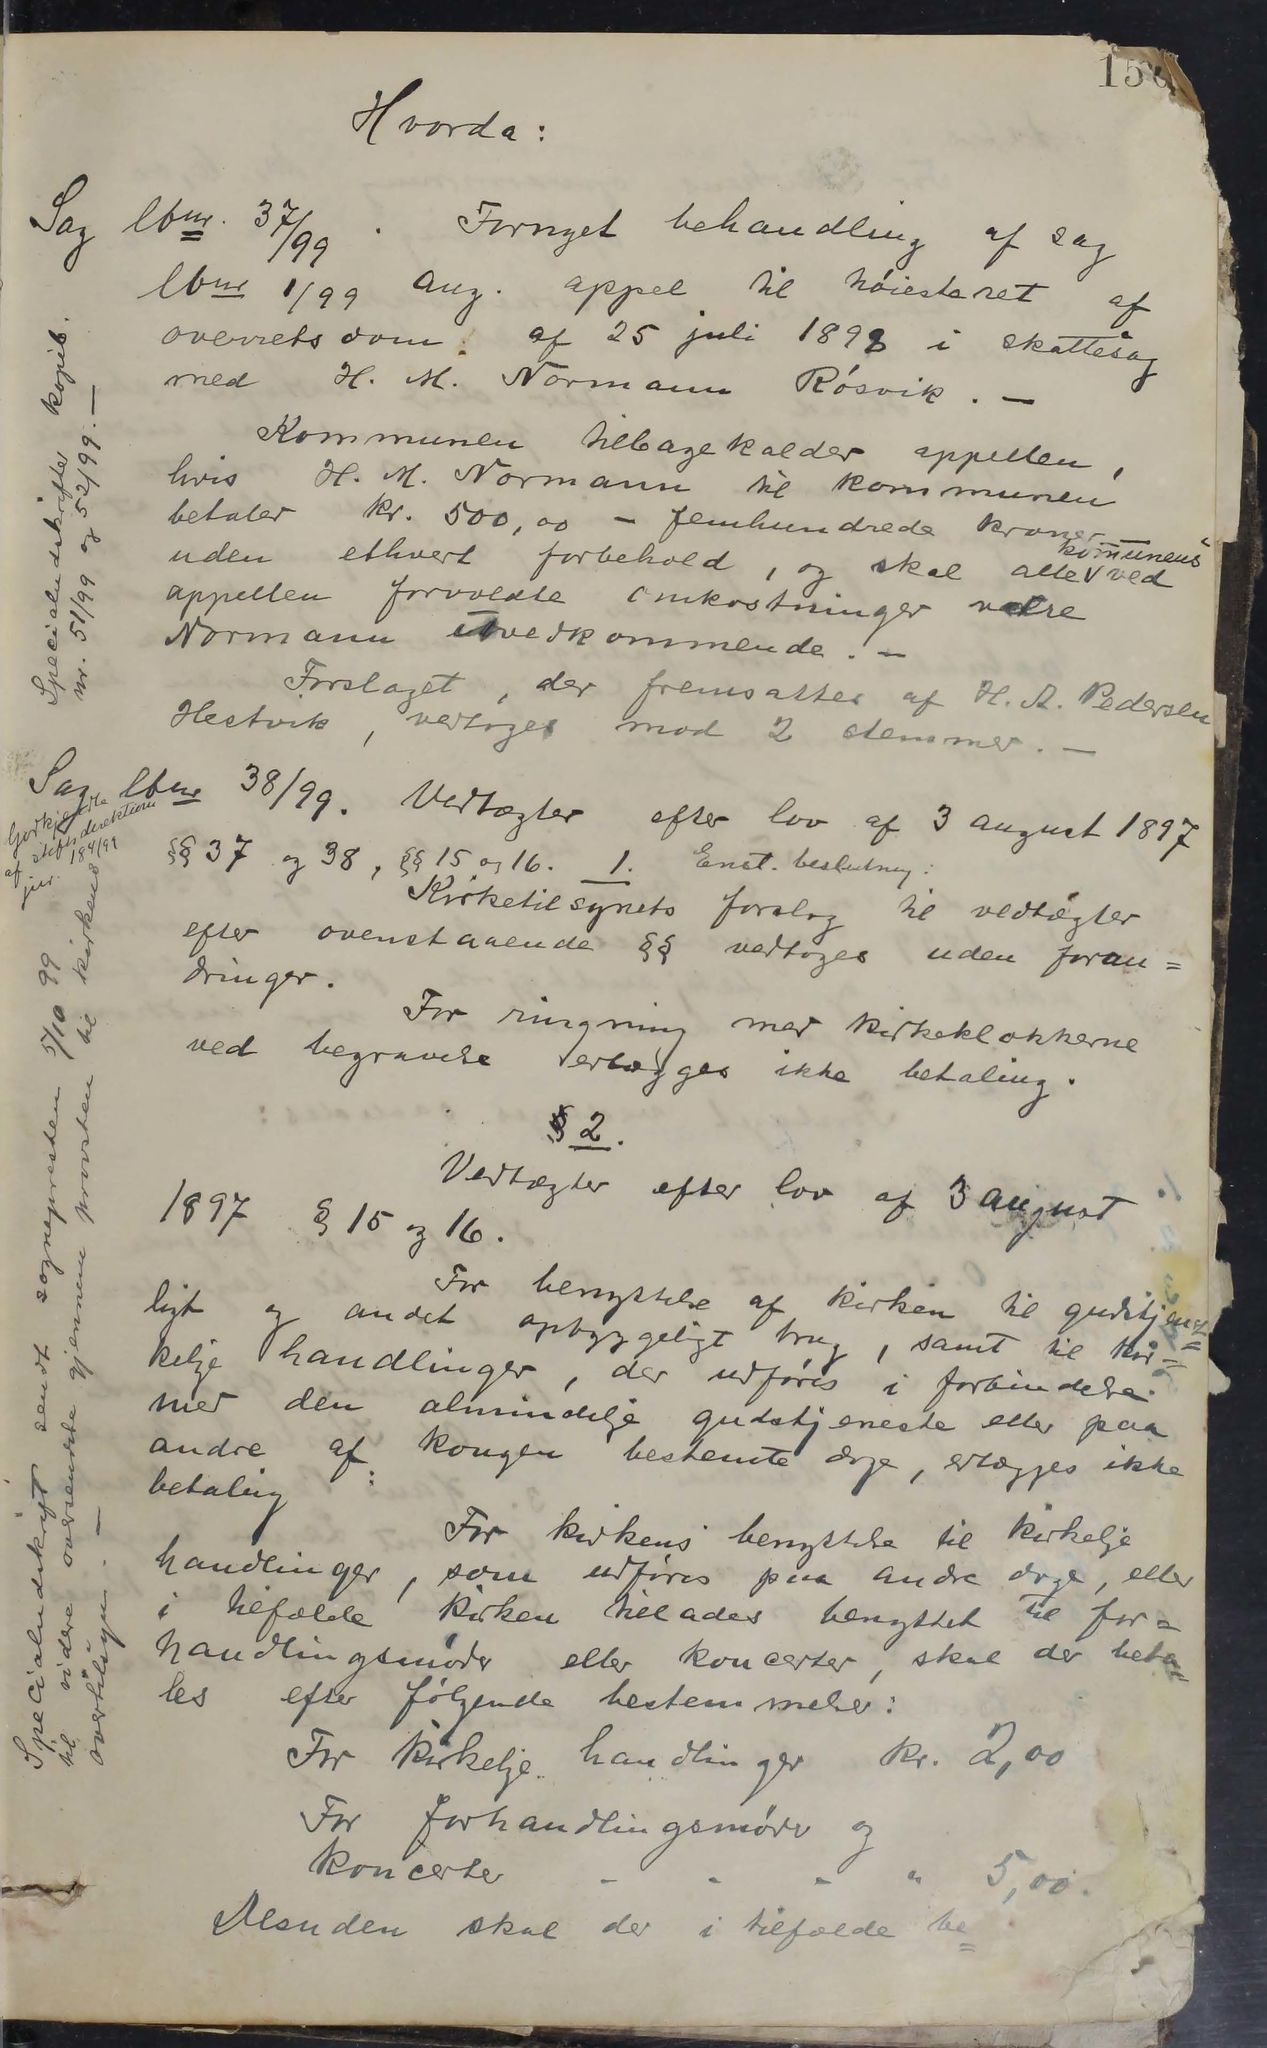 150
Hvorda:
Sag lbnr. 37/99. Fornyet behandling af sag
lbnr 1/99 ang. appel til höiesteret af
overretsdom af 25 juli 1898 i skattesag
med H. M. Normann Rösvik. —
Kommunen tilbagekalder appellen,
hvis H. M. Normann til kommunen
betaler kr. 500,00 – femhundrede kroner —
uden ethvert forbehold, og skal alle kommunens ved
appellen forvoldte omkostninger være
Normann uvedkommende. —
Forslaget, der fremsattes af H. A. Pedersen
Hestvik, vedtoges mod 2 stemmer. —
Sag lbnr 38/99. Vedtægter efter lov af 3 august 1897
§§ 37 og 38, §§ 15 og 16. 1. Enst. beslutning:
Kirketilsynets forslag til vedtægter
efter ovenstaaende §§ vedtoges uden foran=
dringer.
For ringning med kirkeklokkerne
ved begravelse erlægges ikke betaling.
§ 2.
Vedtægter efter lov af 3 august
1897 § 15 og 16.
For benyttelse af kirken til gudstjenst=
ligt og andet opbyggeligt brug, samt til kir=
kelje handlinger, der udföres i forbindelse
med den almindelje gudstjeneste eller paa
andre af kongen bestemte dage, erlægges ikke
betaling:
For kirkens benyttelse til kirkelje
handlinger, som udföres paa andre dage, eller
i tilfælde kirken tillades benyttet til for=
handlingsmöder eller koncerter, skal der beta=
les efter fölgende bestemmelser:
For kirkelje handlinger kr. 2,00
For forhandlingsmöder og
koncerter - - - " 5,00.
Desuden skal der i tilfælde be=
Specialudskrifter kopib.
nr. 51/99 og 52/99. —
Godkjendte
af stiftsdirektionen
jnr. 184/99
Specialudskrift sendt sognepresten 5/10 99
til videre oversendte gjennem provsten til kirkens
overtilsyn. —